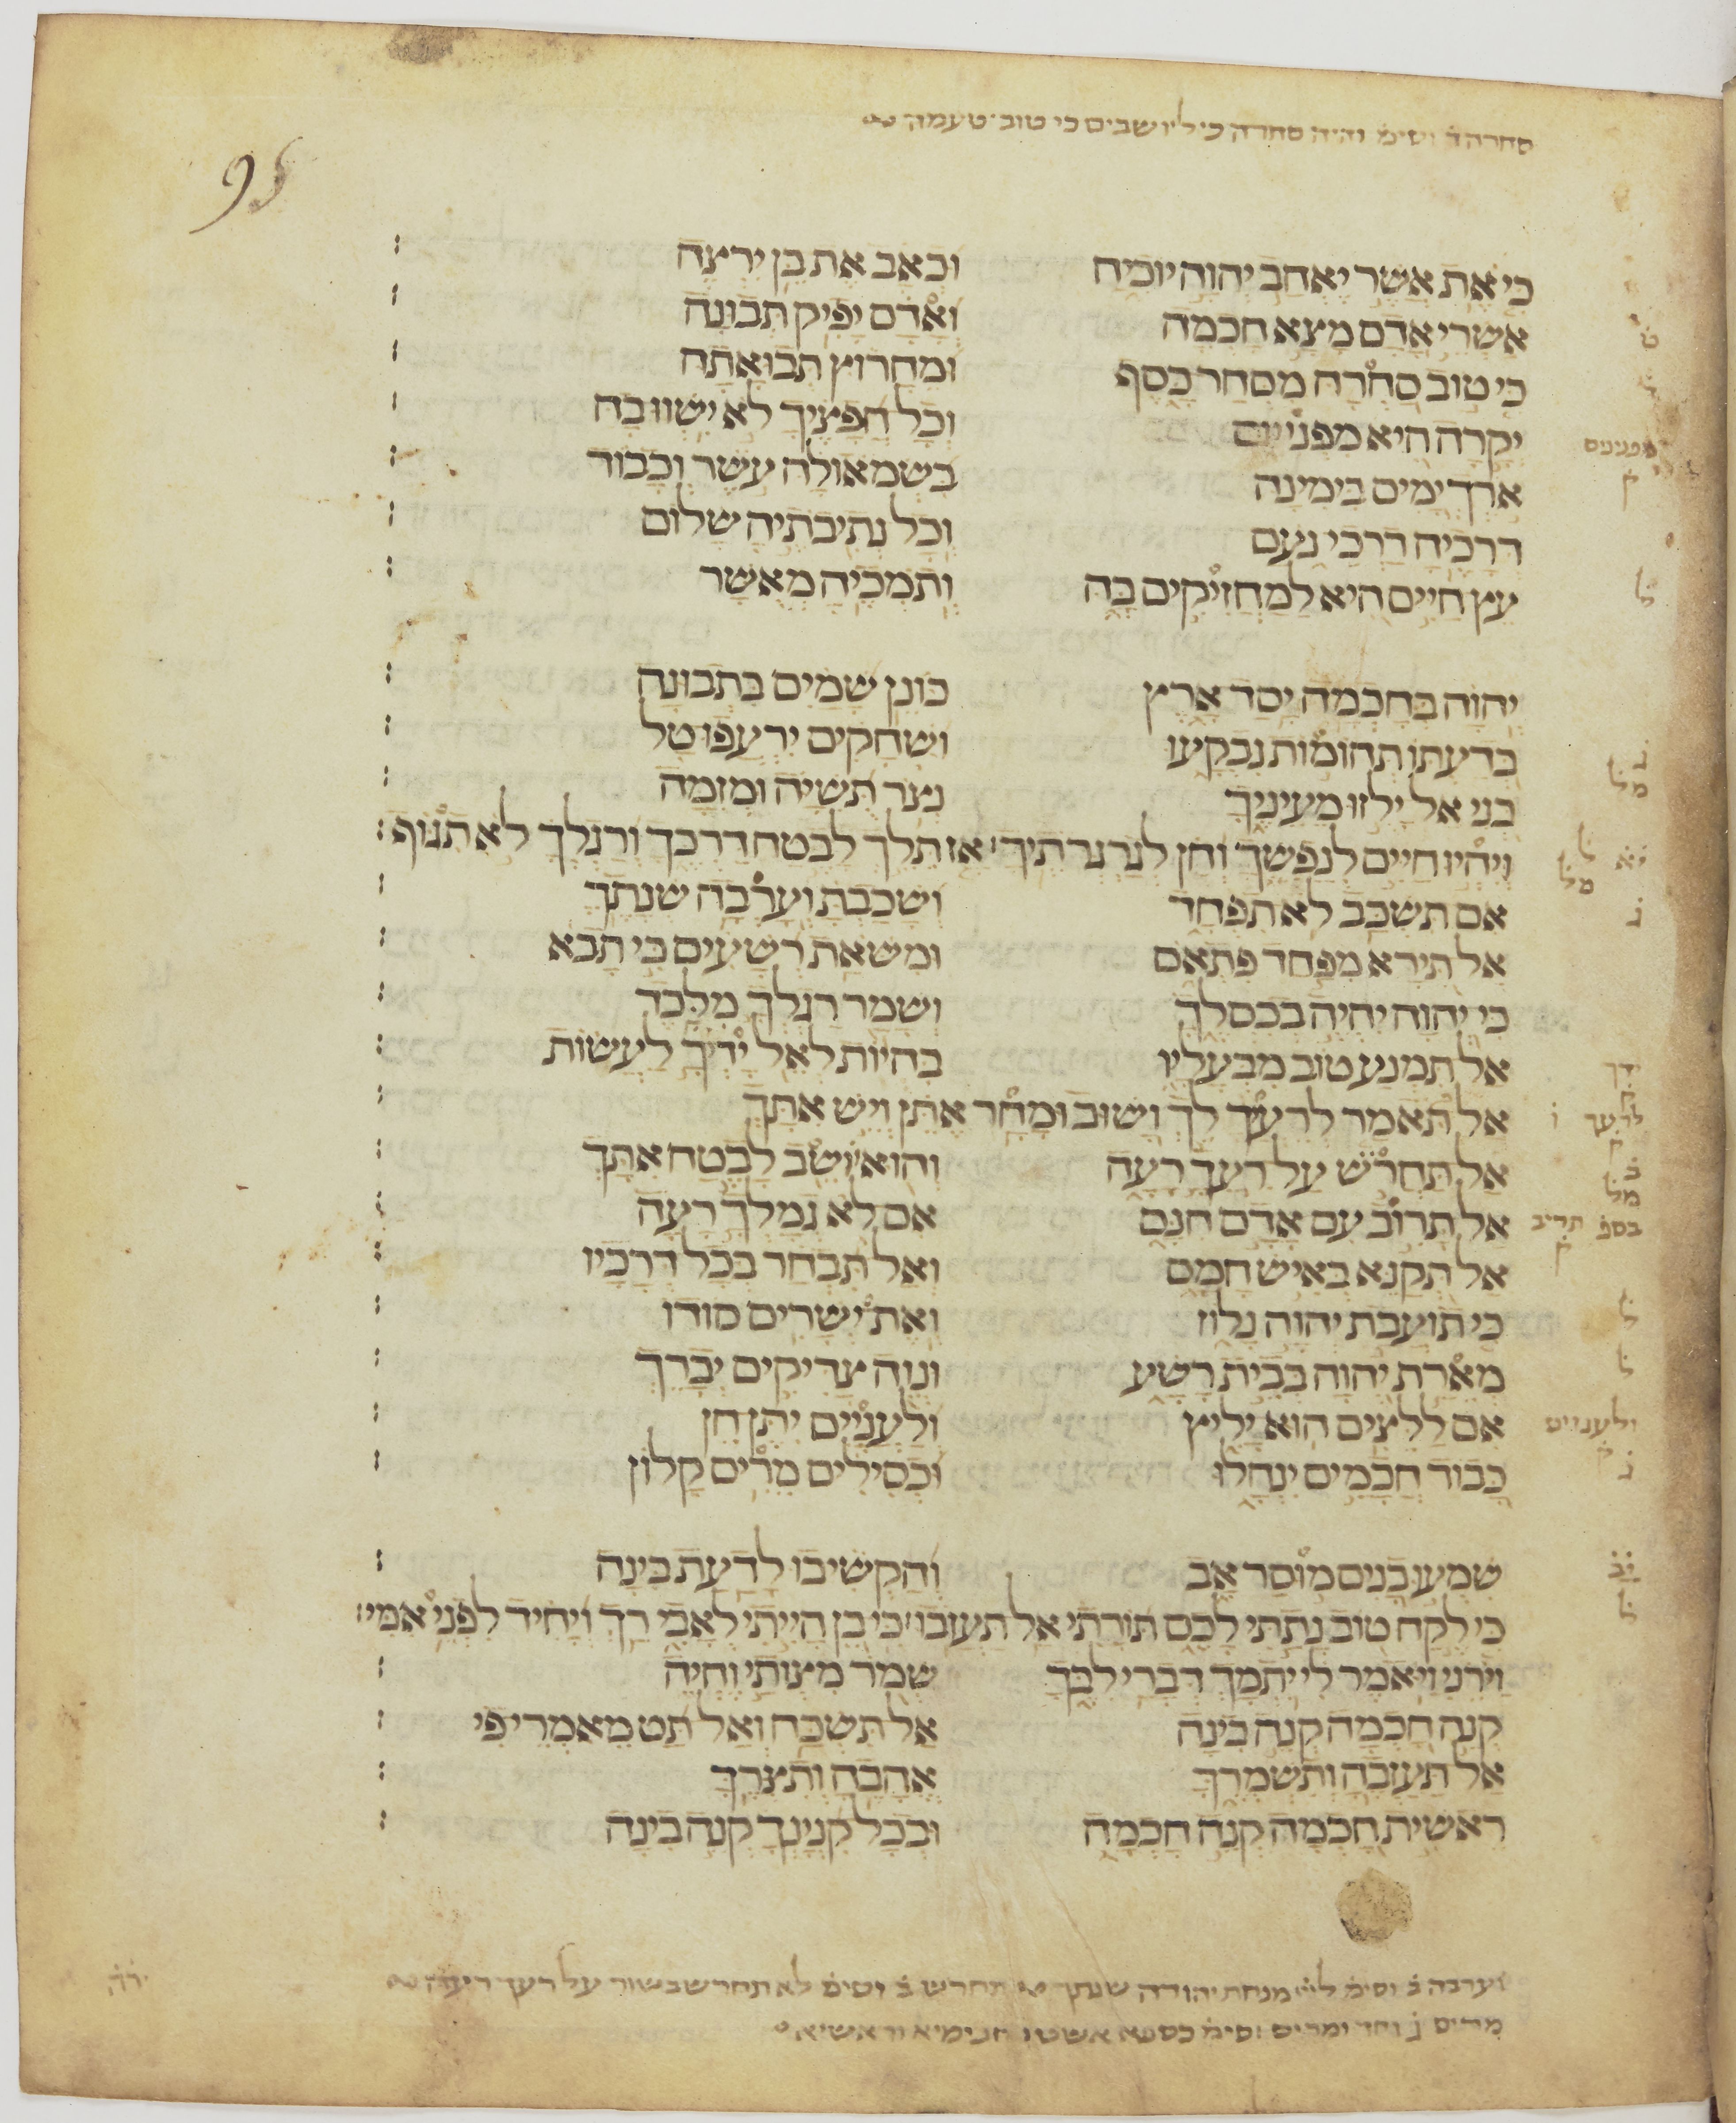 סחרה ד וסימ והיה סחרה כי ליושבים כי טוב טעמה
95
כי את אשר יאהב יהוה יוכיח וכאב את בן ירצה :
אשרי אדם מצא חכמה ואדם יפיק תבונה :
כי טוב סחרה מסחר כסף ומחרוץ תבואתה :
יקרה היא מפניים וכל חפציך לא ישוו בה :
ארך ימים בימינה בשמאולה עשר וכבוד :
דרכיה דרכי נעם וכל נתיבתיה שלום :
עץ חיים היא למחזיקים בה ותמכיה מאשר :
יהוה בחכמה יסד ארץ כונן שמים בתבונה :
בדעתו תהומות נבקעו ושחקים ירעפו טל :
בני אל ילזו מעיניך נצר תשיה ומזמה :
ויהיו חיים לנפשך וחן לגרגרתיך : אז תלך לבטח דרכך ורגלך לא תגוף :
אם תשכב לא תפחד ושכבת וערבה שנתך :
אל תירא מפחד פתאם ומשאת רשעים כי תבא :
כי יהוה יהיה בכסלך ושמר רגלך מלכד :
אל תמנע טוב מבעליו בהיות לאל ידיך לעשות :
אל תאמר לרעיך לך ושוב ומחר אתן ויש אתך :
אל תחרש על רעך רעה והוא יושב לבטח אתך :
אל תרוב עם אדם חנם אם לא גמלך רעה :
אל תקנא באיש חמס ואל תבחר בכל דרכיו :
כי תועבת יהוה נלוז ואת ישרים סודו :
מארת יהוה בבית רשע ונוה צדיקים יברך :
אם ללצים הוא יליץ ולעניים יתן חן :
כבוד חכמים ינחלו וכסילים מרים קלון :
שמעו בנים מוסר אב והקשיבו לדעת בינה :
כי לקח טוב נתתי לכם תורתי אל תעזבו : כי בן הייתי לאבי רך ויחיד לפני אמי :
וירני ויאמר לי יתמך דברי לבך שמר מצותי וחיה :
קנה חכמה קנה בינה אל תשכח ואל תט מאמרי פי :
אל תעזבה ותשמרך אהבה ותצרך :
ראשית חכמה קנה חכמה ובכל קנינך קנה בינה :
וערבה ב וסימ ליי מנחת יהודה שנתך תחרש ב וסימ לא תחרש בשור על רעך רעה
מרים ג וחד ומרים וסימ כספא